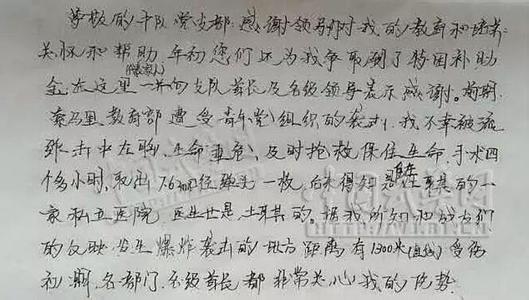 尊敬的斗队党支部:感谢领导对我的教育和培养
关怀和帮助,年初您们还为我争取到了特困补助
金(给家人)在这里一并向支队首长及各级领导表示感谢。前期
索马里教育部遭受青年党组织的袭击,我不幸被流
弹击中左胸,生命垂危,及时抢救,保住生命,手术四
个多小时,取出7.62mm位弹头一枚,后来得知是在土耳其的一
家私立医院 医生也是土耳其的。据我所知和战友们
的反映,发生爆炸袭击的地方距离有1300米(直线)受伤
初期,各部门,各级首长都非常关心我的伤势